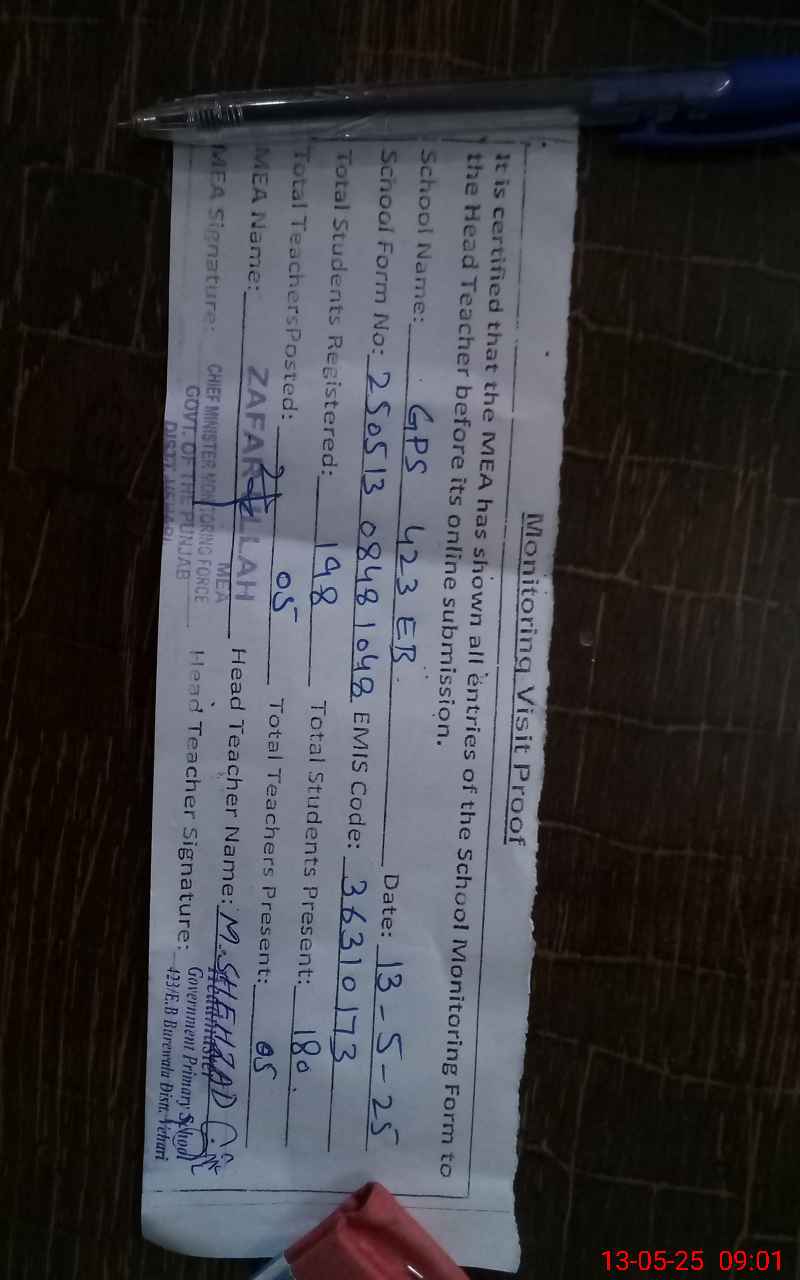 Monitoring Visit Proof
It is certified that the MEA has shown all entries of the School Monitoring Form to
the Head Teacher before its online submission.
School Name: GPS 423 EB. Date: 13-5-25
School Form No: 250513 08481048 EMIS Code: 36310173
Total Students Registered: 198 Total Students Present: 180.
Total TeachersPosted: 05 Total Teachers Present: 05
MEA Name: ZAFAR ULLAH Head Teacher Name: M. SHEHZAD
MEA
MEA Signature: CHIEF MINISTER MONITORING FORCE Head Teacher Signature: Headmaster
GOVT. OF THE PUNJAB Government Primary School
DISTT. VEHARI 423/E.B Burewala Distt. Vehari
13-05-25 09:01